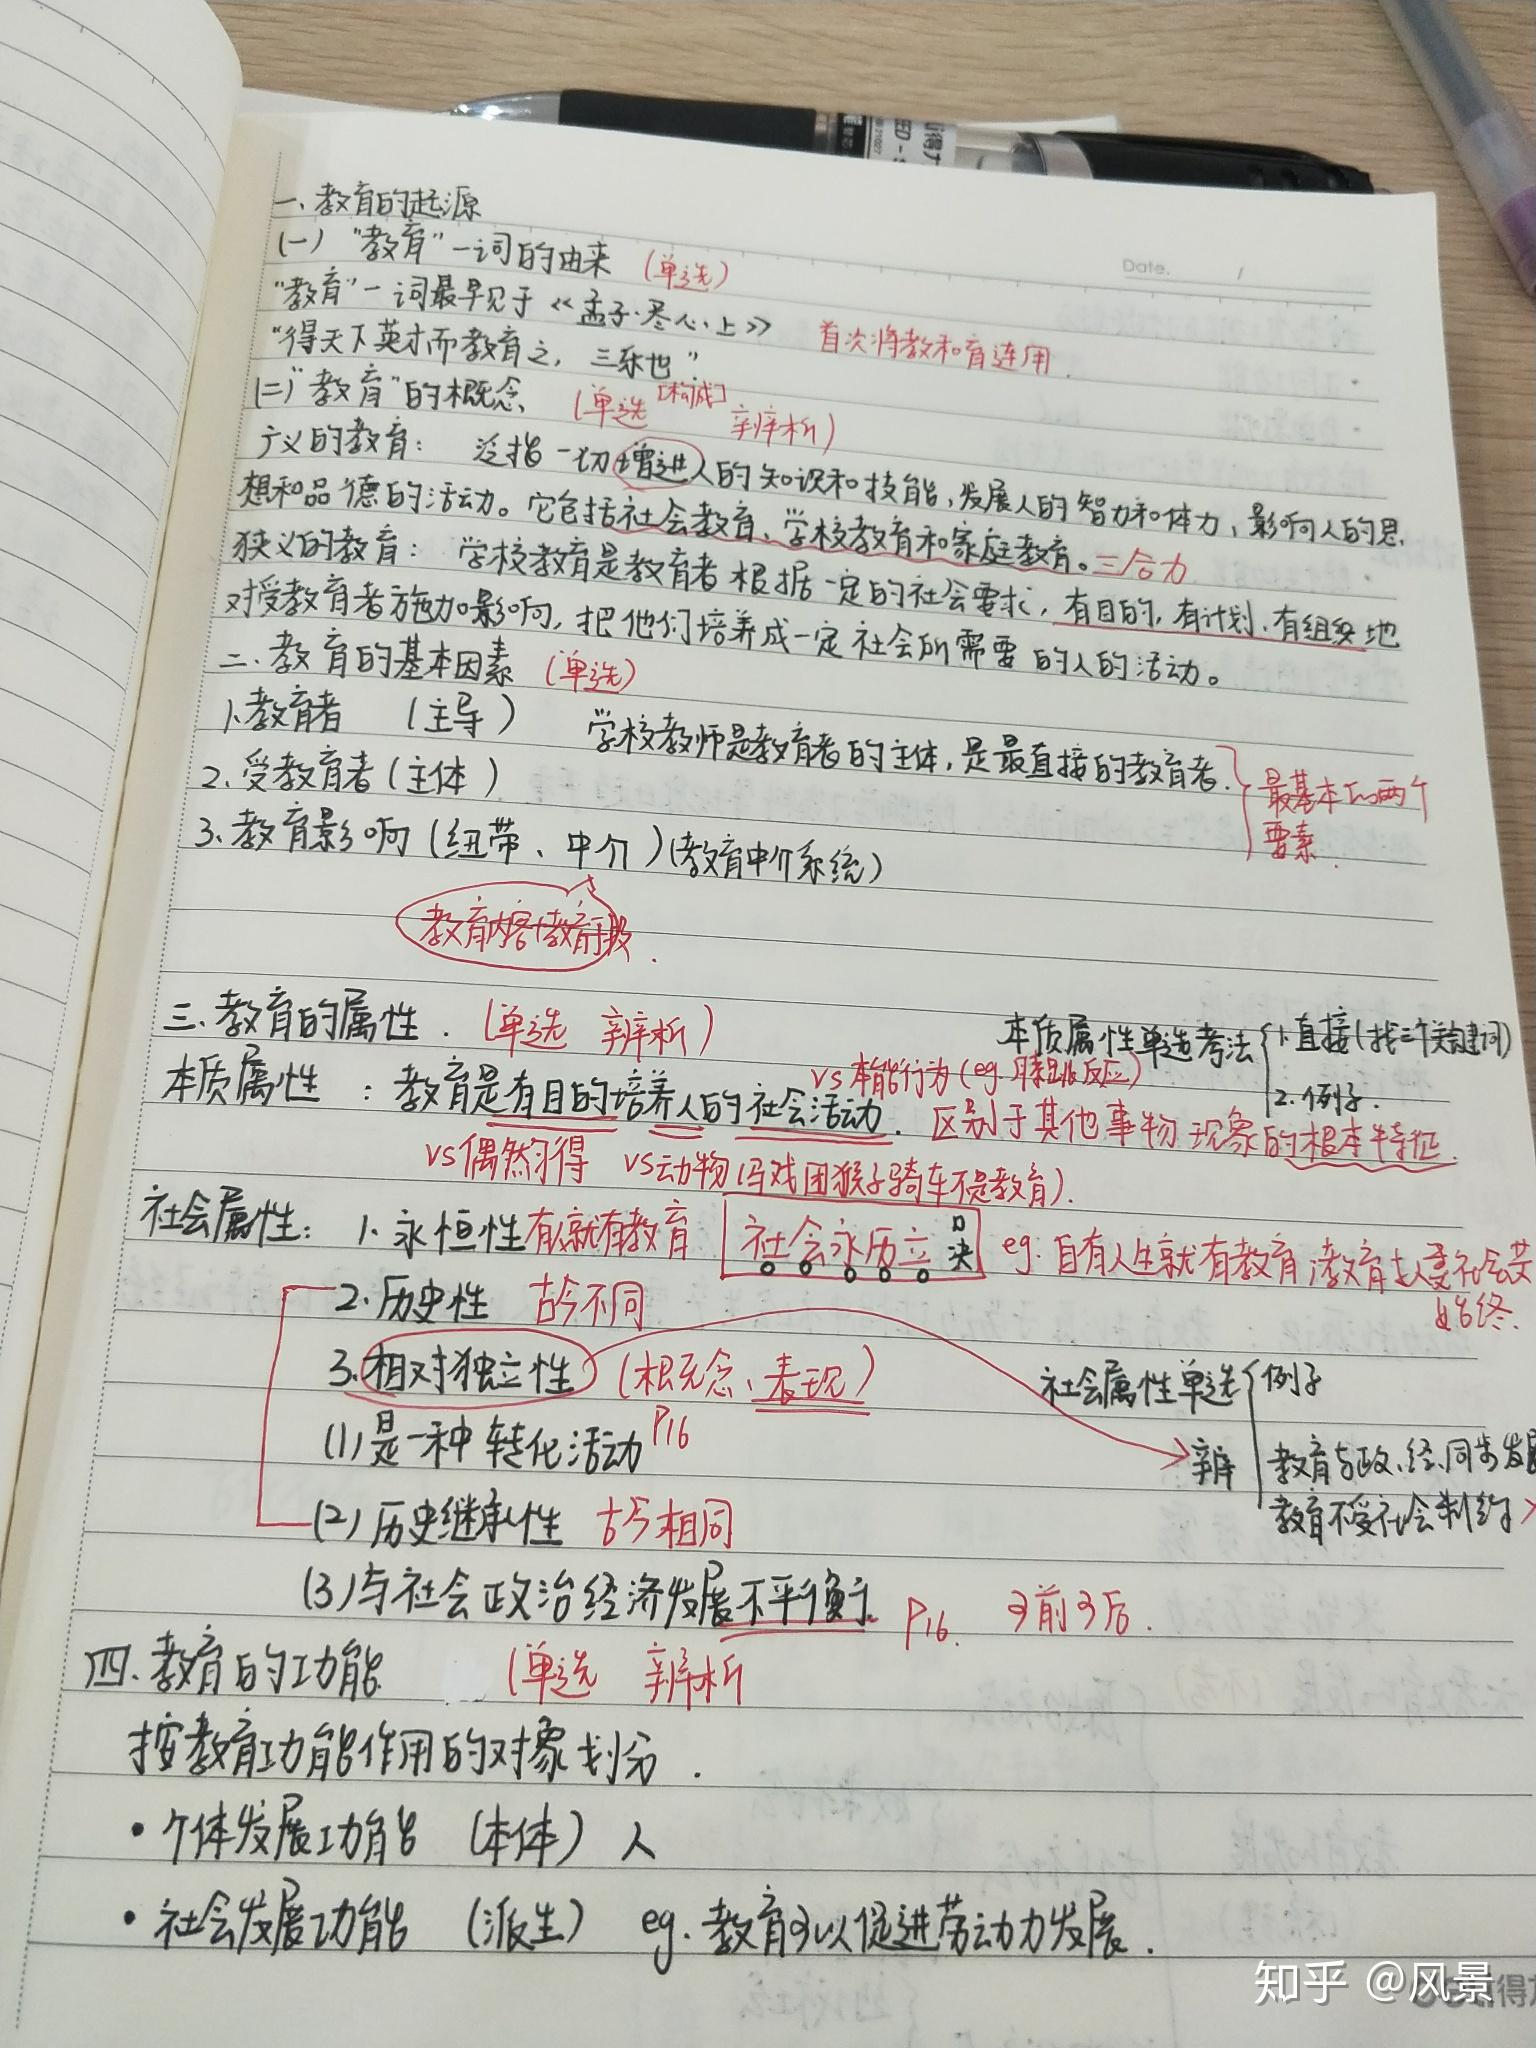 Date. /
一、教育的起源
(一)“教育”一词的由来 (单选)
“教育”一词最早见于《孟子·尽心·上》
“得天下英才而教育之，三乐也” 首次将教和育连用.
(二)“教育”的概念 (单选[构成] 辨析)
广义的教育： 泛指一切增进人的知识和技能，发展人的智力和体力，影响人的思
想和品德的活动。它包括社会教育、学校教育和家庭教育。三合力
狭义的教育： 学校教育是教育者根据一定的社会要求，有目的，有计划、有组织地
对受教育者施加影响，把他们培养成一定社会所需要的人的活动。
二、教育的基本因素 (单选)
1.教育者 (主导) 学校教师是教育者的主体，是最直接的教育者.
2.受教育者(主体)
最基本的两个
要素.
3.教育影响(纽带、中介)(教育中介系统)
教育内容+教育手段.
三、教育的属性. (单选 辨析)
本质属性单选考法 1.直接(找三个关键词)
2.例子.
vs本能行为(eg.膝跳反应)
本质属性：教育是有目的培养人的社会活动. 区别于其他事物现象的根本特征.
vs偶然习得 vs动物(马戏团猴子骑车不是教育).
社会属性： 1.永恒性 有人就有教育 社会永历立 口决 eg.自有人生就有教育，教育与人类社会共
始终.
2.历史性 古今不同
3.相对独立性 (概念、表现)
社会属性单选 例子
(1)是一种转化活动 P16
辨 教育与政、经、同步发展
教育不受社会制约
(2)历史继承性 古今相同
(3)与社会政治经济发展不平衡. P16. 可前可后.
四、教育的功能 (单选 辨析
按教育功能作用的对象划分.
·个体发展功能 (本体) 人
·社会发展功能 (派生) eg.教育可以促进劳动力发展.
知乎 @风景